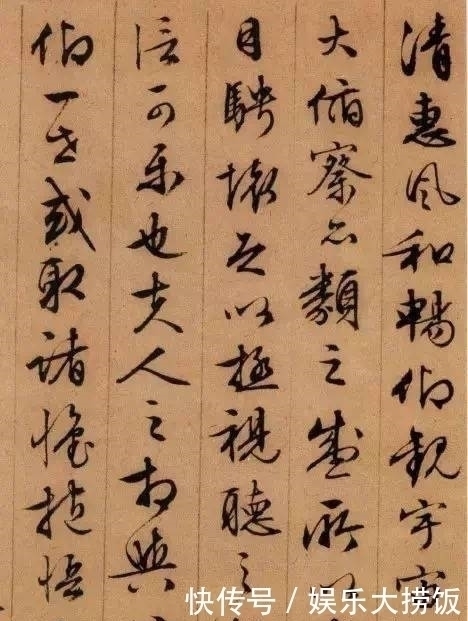 清惠風和暢仰觀宇宙
大俯察品類之盛所以
目騁懷足以極視聽之
信可樂也夫人之相與
仰一世或取諸懷抱悟
快传号 / 娱乐大捞饭